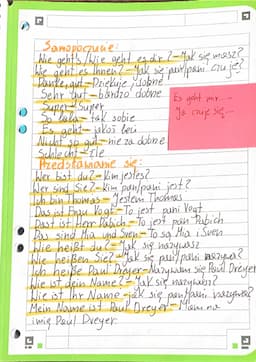 Samopoczucie:
Wie geht's / Wie geht es dir? - Jak się masz?
Wie geht es Ihnen? - Jak się pan/pani czuje?
Danke, gut - Dziękuję, dobrze
Sehr gut - bardzo dobrze
Super - Super
So lala - tak sobie
Es geht - jakoś leci
Nicht so gut - nie za dobrze
Schlecht - źle
Es geht mir...
Ja czuję się...
Przedstawianie się:
Wer bist du? - Kim jesteś?
Wer sind Sie? - Kim pan/pani jest?
Ich bin Thomas - Jestem Thomas
Das ist Frau Vogt - To jest pani Vogt
Das ist Herr Pabich - To jest pan Pabich
Das sind Mia und Sven - To są Mia i Sven
Wie heißt du? - Jak się nazywasz
Wie heißen Sie? - Jak się pan/pani nazywa?
Ich heiße Paul Dreyer - Nazywam się Paul Dreyer
Wie ist dein Name? - Jak się nazywasz?
Wie ist Ihr Name - jak się pan/pani nazywa?
Mein Name ist Paul Dreyer - Mam na
imię Paul Dreyer